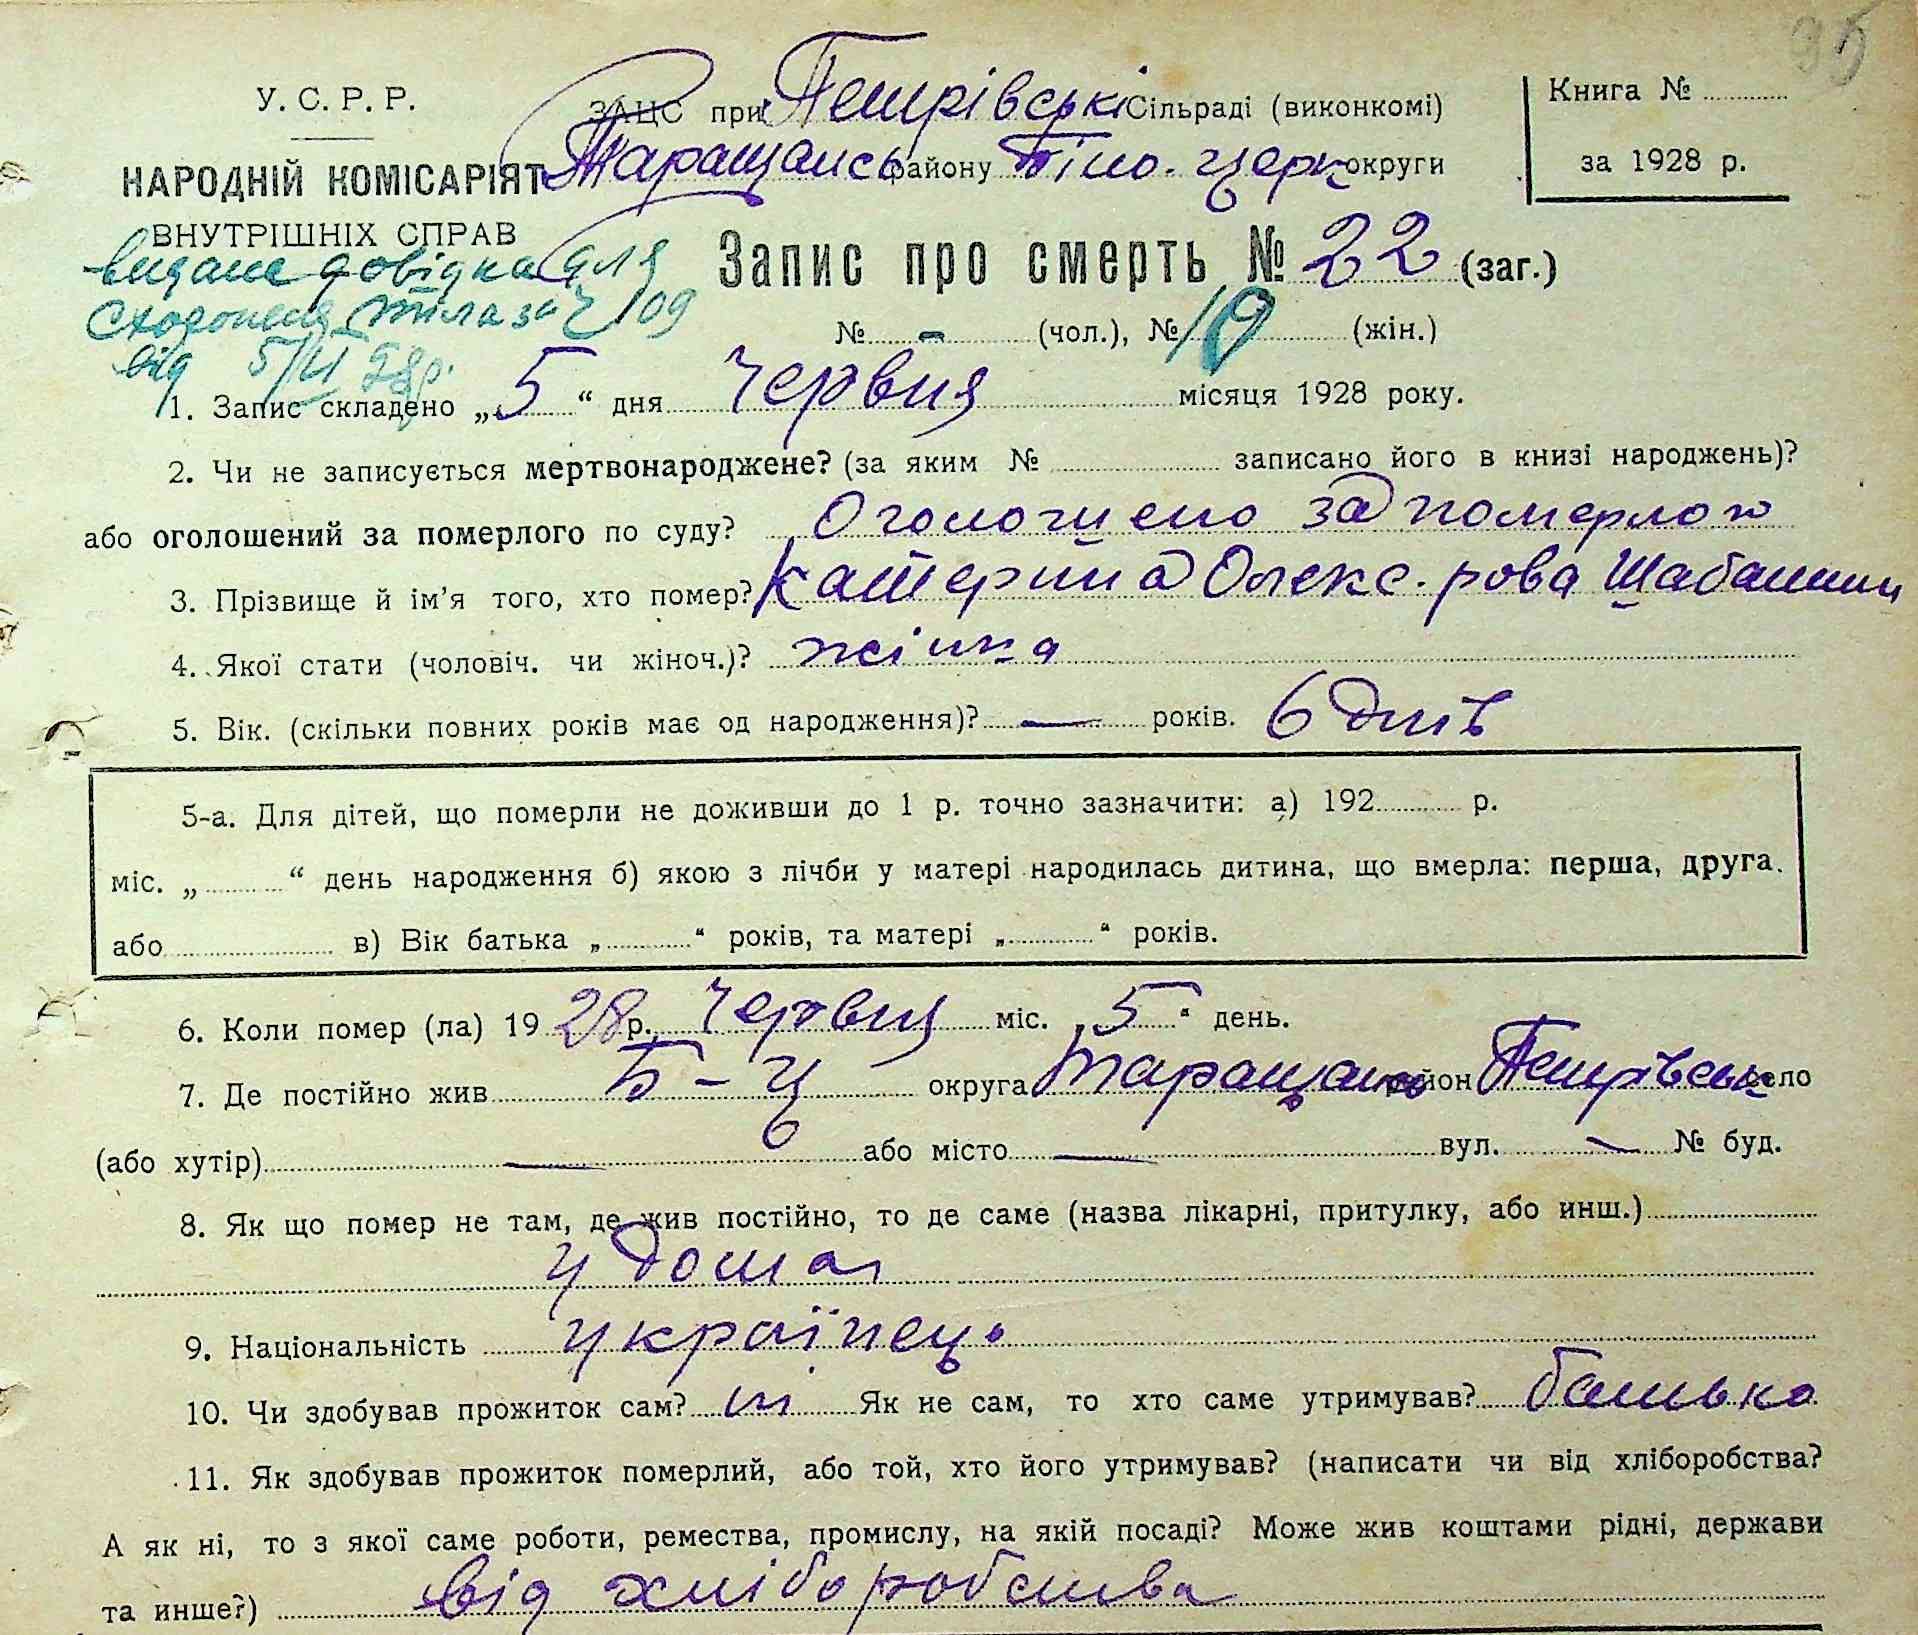 95
У. С. Р. Р.
НАРОДНІЙ КОМІСАРІЯТ
ВНУТРІШНІХ СПРАВ
ЗАЦС при Петрівські Сільраді (виконкомі)
Таращансь району Біло-церк округи
Книга №
за 1928 р.
видане довідка для
схоронення тіла за Ч 109
від 5/VI 28р.
Запис про смерть № 22 (заг.)
№ - (чол.), № 10 (жін.)
1. Запис складено „5“ дня Червня місяця 1928 року.
2. Чи не записується мертвонароджене? (за яким № записано його в книзі народжень)?
або оголошений за померлого по суду? Оголошено за померлою
3. Прізвище й ім’я того, хто помер? Катерина Олекс-рова
4. Якої стати (чоловіч. чи жіноч.)? жінка
5. Вік. (скільки повних років має од народження)? — років. 6 днів
5-а. Для дітей, що померли не доживши до 1 р. точно зазначити: а) 192 р.
міс. „ “ день народження б) якою з лічби у матері народилась дитина, що вмерла: перша, друга.
або в) Вік батька „ “ років, та матері „ “ років.
6. Коли помер (ла) 1928 р. Червня міс. „5“ день.
7. Де постійно жив Б-Ц округа Таращансь район Петрівськ село
(або хутір) — або місто — вул. — № буд.
8. Як що помер не там, де жив постійно, то де саме (назва лікарні, притулку, або инш.)
у дома
9. Національність українець
10. Чи здобував прожиток сам? ні Як не сам, то хто саме утримував? батько
11. Як здобував прожиток померлий, або той, хто його утримував? (написати чи від хліборобства?
А як ні, то з якої саме роботи, ремества, промислу, на якій посаді? Може жив коштами рідні, держави
та инше?) від хліборобства